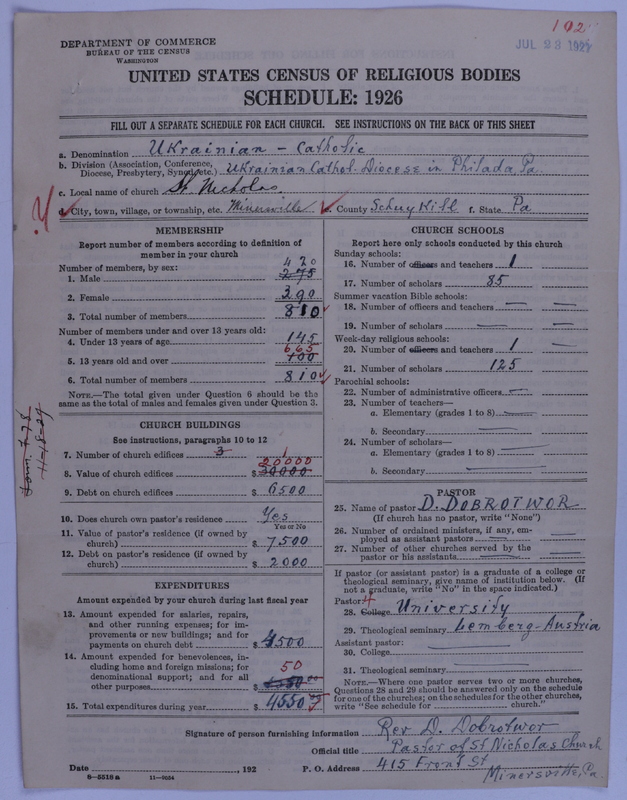 192
JUL 23 192
DEPARTMENT OF COMMERCE
BUREAU OF THE CENSUS
WASHINGTON
UNITED STATES CENSUS OF RELIGIOUS BODIES
SCHEDULE: 1926
FILL OUT A SEPARATE SCHEDULE FOR EACH CHURCH. SEE INSTRUCTIONS ON THE BACK OF THIS SHEET
a. Denomination Ukrainian - Catholic
b. Division (Association, Conference, Diocese, Presbytery, Synod, etc.) Ukrainian Cathol. Diocese in Philada, Pa.
c. Local name of church St Nicholas
d. City, town, village, or township, etc. Minersville e. County Schuylkill f. State Pa
MEMBERSHIP
Report number of members according to definition of member in your church
Number of members, by sex:
420
1. Male 275
2. Female 390
3. Total number of members 810
Number of members under and over 13 years old:
4. Under 13 years of age 145
665
5. 13 years old and over 700
6. Total number of members 810
NOTE.—The total given under Question 6 should be the same as the total of males and females given under Question 3.
CHURCH BUILDINGS
See instructions, paragraphs 10 to 12
7. Number of church edifices 3 1
20000
8. Value of church edifices $ 30000
9. Debt on church edifices $ 6500
10. Does church own pastor's residence Yes
Yes or No
11. Value of pastor's residence (if owned by church) $ 7500
12. Debt on pastor's residence (if owned by church) $ 2000
EXPENDITURES
Amount expended by your church during last fiscal year
13. Amount expended for salaries, repairs, and other running expenses; for improvements or new buildings; and for payments on church debt $ 4500
14. Amount expended for benevolences, including home and foreign missions; for denominational support; and for all other purposes $ 50
15. Total expenditures during year $ 4550
CHURCH SCHOOLS
Report here only schools conducted by this church
Sunday schools:
16. Number of officers and teachers 1
17. Number of scholars 85
Summer vacation Bible schools:
18. Number of officers and teachers —
19. Number of scholars —
Week-day religious schools:
20. Number of officers and teachers 1
21. Number of scholars 125
Parochial schools:
22. Number of administrative officers —
23. Number of teachers—
a. Elementary (grades 1 to 8) —
b. Secondary —
24. Number of scholars—
a. Elementary (grades 1 to 8) —
b. Secondary —
PASTOR
25. Name of pastor D. DOBROTWOR
(If church has no pastor, write "None")
26. Number of ordained ministers, if any, employed as assistant pastors —
27. Number of other churches served by the pastor or his assistants —
If pastor (or assistant pastor) is a graduate of a college or theological seminary, give name of institution below. (If not a graduate, write "No" in the space indicated.)
Pastor: 4
28. College University
29. Theological seminary Lemberg-Austria
Assistant pastor:
30. College
31. Theological seminary
NOTE.—Where one pastor serves two or more churches, Questions 28 and 29 should be answered only on the schedule for one of the churches; on the schedules for the other churches, write "See schedule for church."
Signature of person furnishing information Rev D. Dobrotwor
Official title Pastor of St Nicholas Church
Date , 192 P. O. Address 415 Front St
Minersville, Pa.
8—5518 a 11—9034